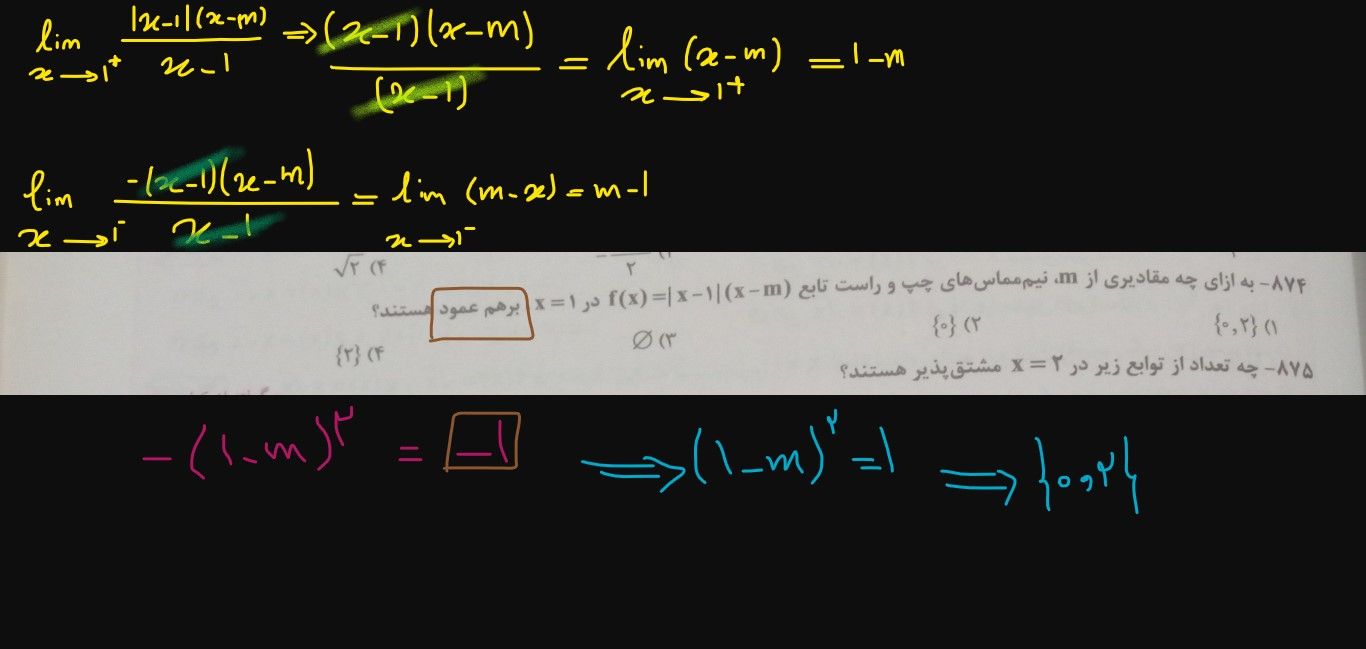 lim x→1⁺ |x-1|(x-m) / x-1 ⇒ (x-1)(x-m) / (x-1) = lim x→1⁺ (x-m) = 1-m
lim x→1⁻ -(x-1)(x-m) / x-1 = lim x→1⁻ (m-x) = m-1
۴) √۲
۸۷۴- به ازای چه مقادیری از m، نیم‌مماس‌های چپ و راست تابع f(x)=|x-۱|(x-m) در x=۱ برهم عمود هستند؟
۱) {۰,۲} ۲) {۰} ۳) ∅ ۴) {۲}
۸۷۵- چه تعداد از توابع زیر در x=۲ مشتق‌پذیر هستند؟
-(1-m)^۲ = -1 ⇒ (1-m)^۲ = 1 ⇒ {۰ و ۲}